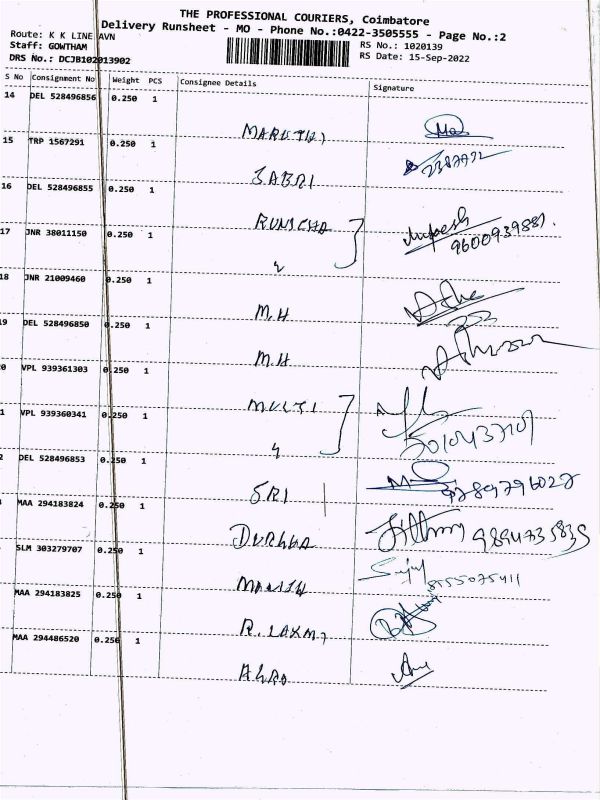 THE PROFESSIONAL COURIERS, Coimbatore
Delivery Runsheet - MO - Phone No.:0422-3505555 - Page No.:2
Route: K K LINE AVN
Staff: GOWTHAM
DRS No.: DCJB102013902
RS No.: 1020139
RS Date: 15-Sep-2022
S No Consignment No Weight PCS Consignee Details Signature
14 DEL 528496856 0.250 1
MARUTHI
15 TRP 1567291 0.250 1
SABRI
16 DEL 528496855 0.250 1
17 JNR 38011150 0.250 1
9600939881.
18 JNR 21009460 0.250 1
M.H
9 DEL 528496850 0.250 1
M.H
0 VPL 939361303 0.250 1
MULTI
1 VPL 939360341 0.250 1
2 DEL 528496853 0.250 1
SRI 9789796027
MAA 294183824 0.250 1
DURGGA 9894735839
SLM 303279707 0.250 1
8555075411
MAA 294183825 0.250 1
R. LAXMI
MAA 294486520 0.250 1